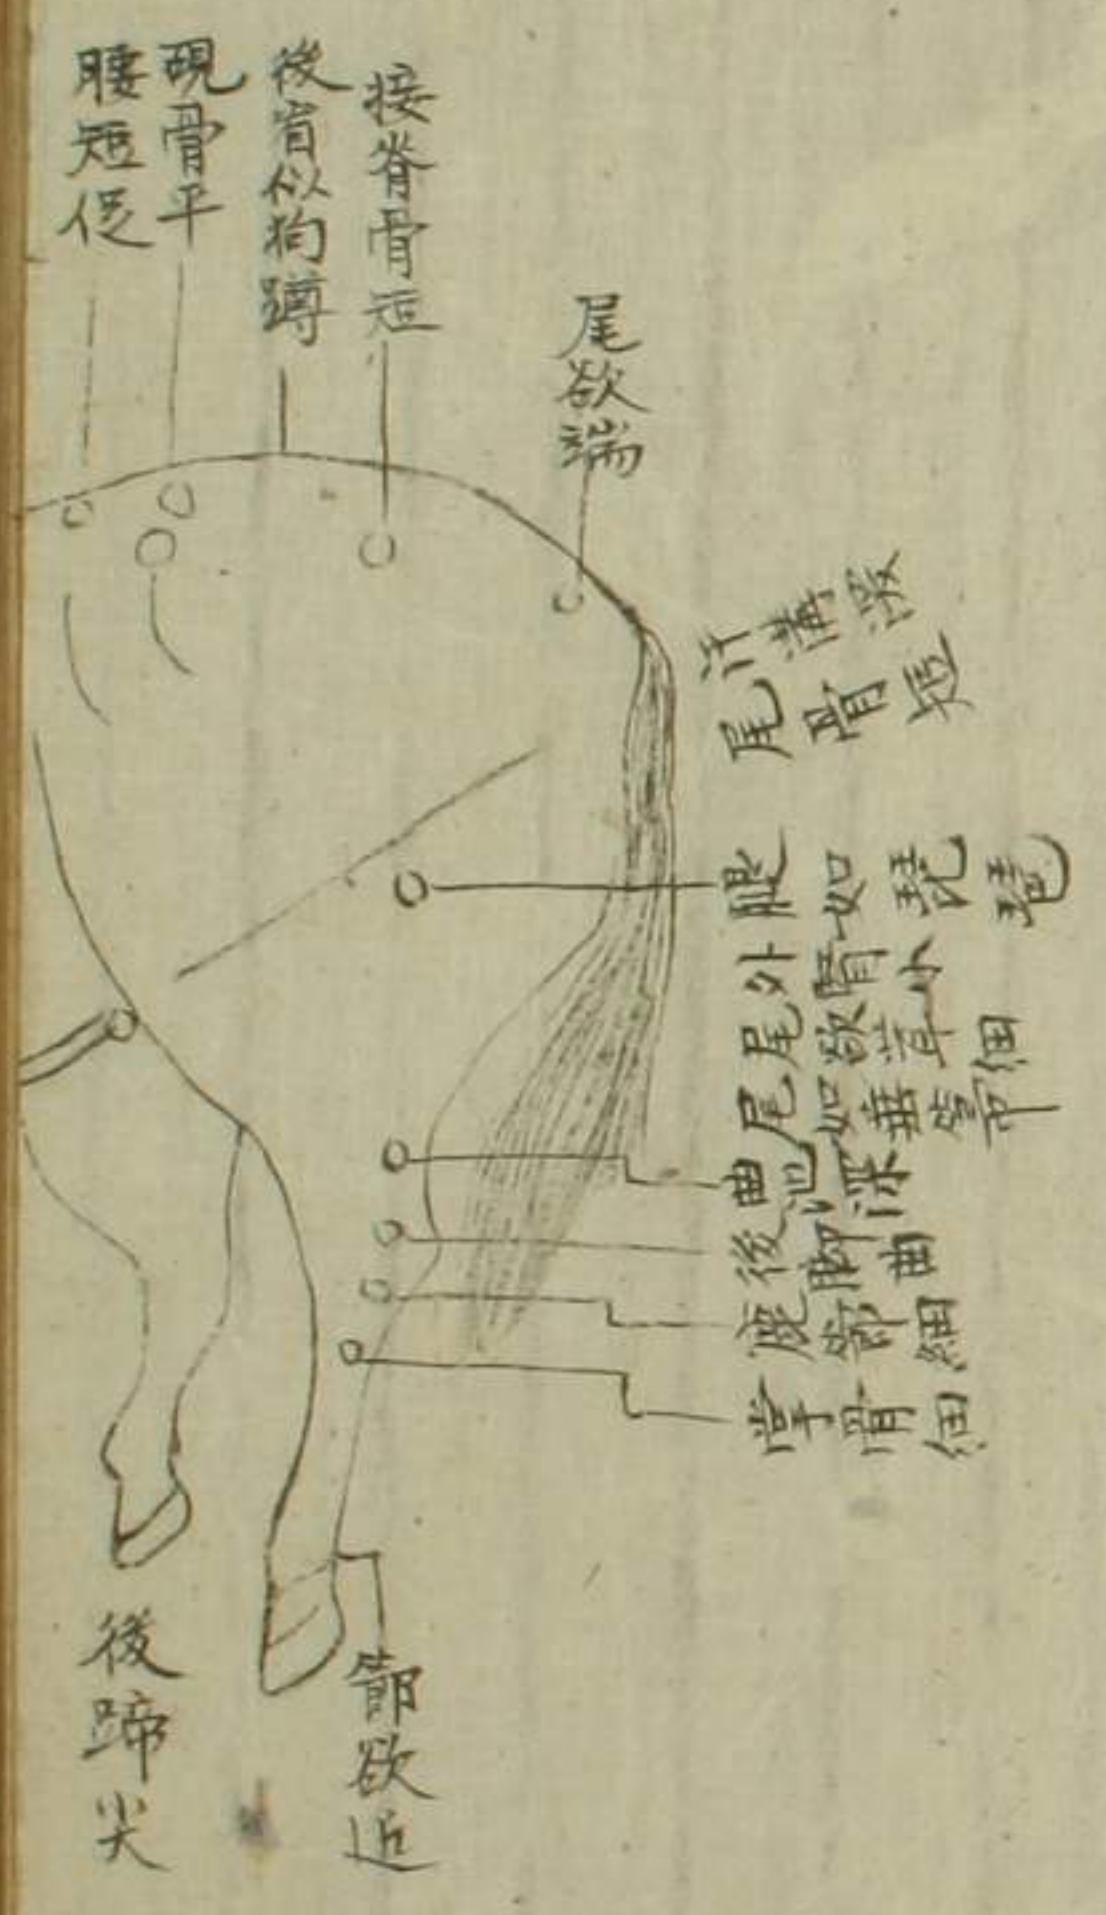 尾欲端
接脊骨短
後看似狗蹲
硯骨平
腰短促
汗溝深
尾骨短
腿如琵琶
外腎小
尾欲細
尾如垂箒
曲池深
後脚曲
鹿節細
掌骨細
節欲近
後蹄尖